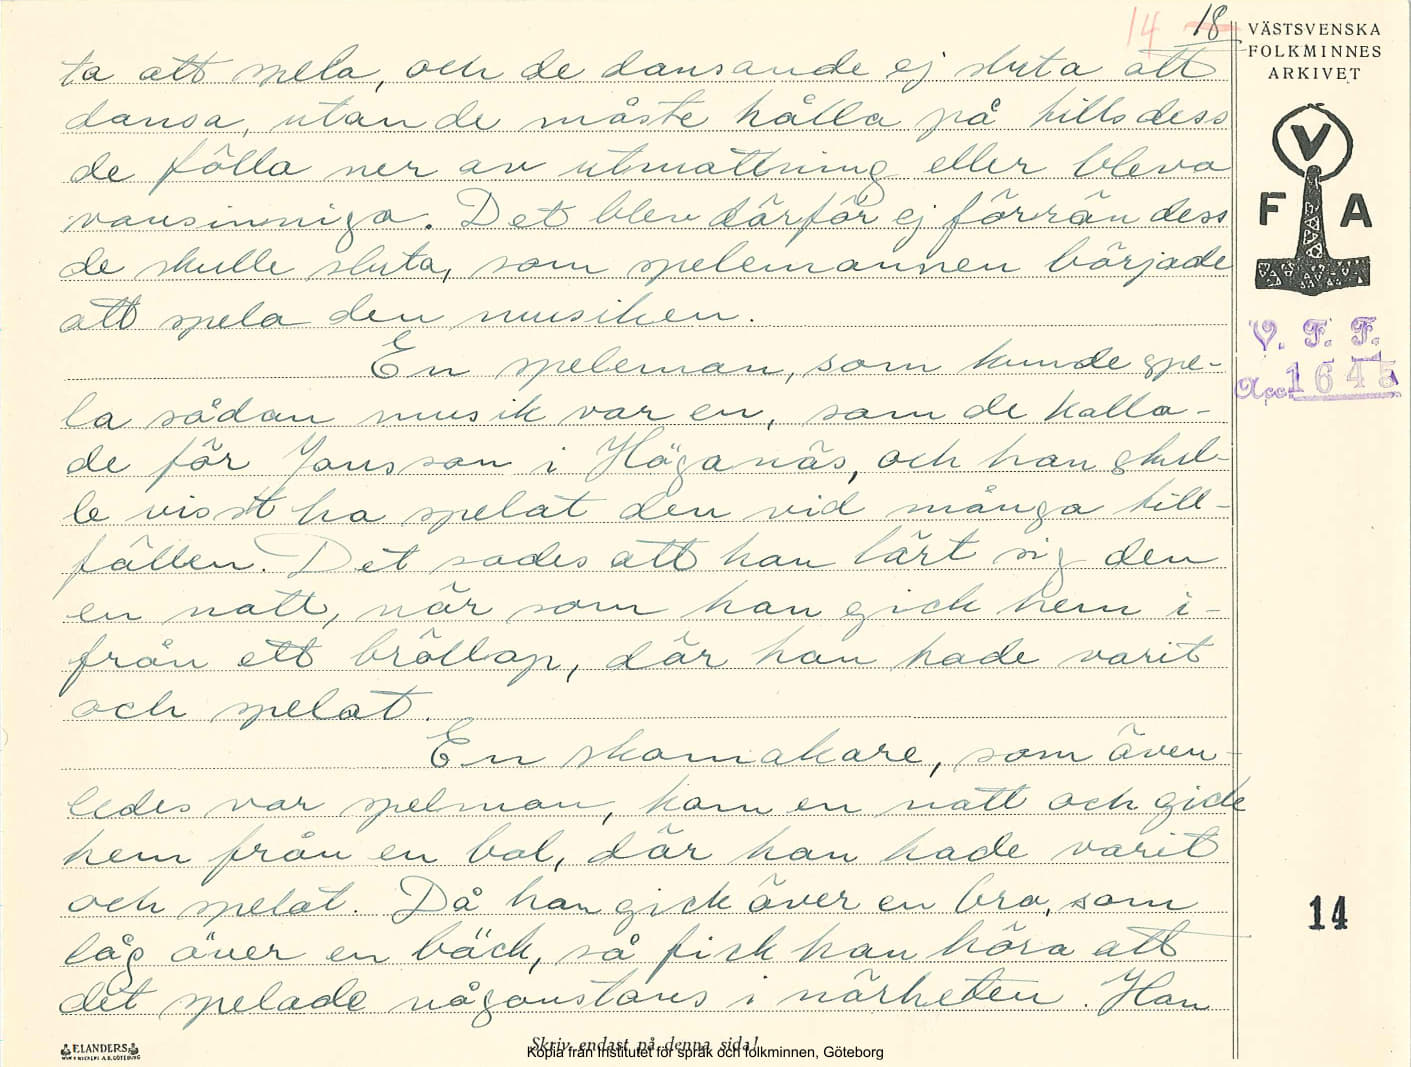 14 18
VÄSTSVENSKA
FOLKMINNES
ARKIVET
ta att spela, och de dansande ej sluta att
dansa, utan de måste hålla på tills dess
de fölla ner av utmattning eller bleva
vansinniga. Det blev därför ej förrän dess
de skulle sluta, som spelemannen började
att spela den musiken.
En speleman, som kunde spe-
la sådan musik var en, som de kalla-
de för Jonsson i Höganäs, och han skul-
le visst ha spelat den vid många till-
fällen. Det sades att han lärt sig den
en natt, när som han gick hem i-
från ett bröllop, där han hade varit
och spelat.
En skomakare, som även-
ledes var spelman, kom en natt och gick
hem från en bal, där han hade varit
och spelat. Då han gick över en bro, som
låg över en bäck, så fick han höra att
det spelade någonstans i närheten. Han
V
F A
V. F. F.
Acc. 1645
14
ELANDERS
Skriv endast på denna sida!
Kopia från Institutet för språk och folkminnen, Göteborg